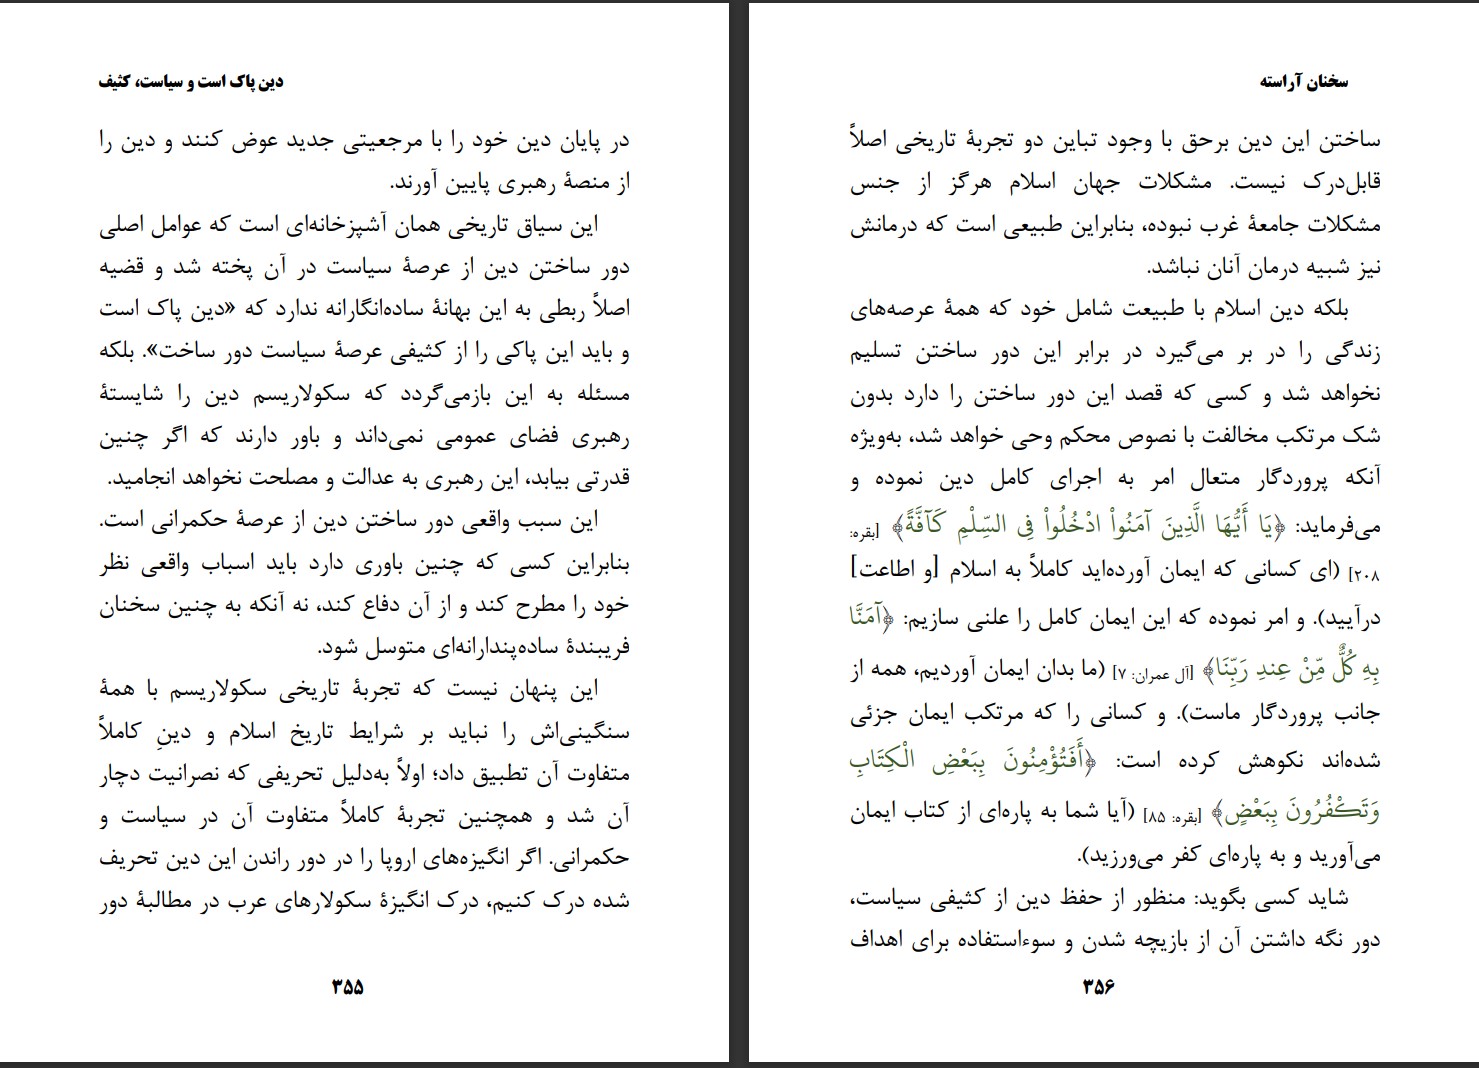 دین پاک است و سیاست، کثیف
در پایان دین خود را با مرجعیتی جدید عوض کنند و دین را
از منصهٔ رهبری پایین آورند.
این سیاق تاریخی همان آشپزخانه‌ای است که عوامل اصلی
دور ساختن دین از عرصهٔ سیاست در آن پخته شد و قضیه
اصلاً ربطی به این بهانهٔ ساده‌انگارانه ندارد که «دین پاک است
و باید این پاکی را از کثیفی عرصهٔ سیاست دور ساخت». بلکه
مسئله به این بازمی‌گردد که سکولاریسم دین را شایستهٔ
رهبری فضای عمومی نمی‌داند و باور دارند که اگر چنین
قدرتی بیابد، این رهبری به عدالت و مصلحت نخواهد انجامید.
این سبب واقعی دور ساختن دین از عرصهٔ حکمرانی است.
بنابراین کسی که چنین باوری دارد باید اسباب واقعی نظر
خود را مطرح کند و از آن دفاع کند، نه آنکه به چنین سخنان
فریبندهٔ ساده‌پندارانه‌ای متوسل شود.
این پنهان نیست که تجربهٔ تاریخی سکولاریسم با همهٔ
سنگینی‌اش را نباید بر شرایط تاریخ اسلام و دینِ کاملاً
متفاوت آن تطبیق داد؛ اولاً به‌دلیل تحریفی که نصرانیت دچار
آن شد و همچنین تجربهٔ کاملاً متفاوت آن در سیاست و
حکمرانی. اگر انگیزه‌های اروپا را در دور راندن این دین تحریف
شده درک کنیم، درک انگیزهٔ سکولارهای عرب در مطالبهٔ دور
۳۵۵
سخنان آراسته
ساختن این دین برحق با وجود تباین دو تجربهٔ تاریخی اصلاً
قابل‌درک نیست. مشکلات جهان اسلام هرگز از جنس
مشکلات جامعهٔ غرب نبوده، بنابراین طبیعی است که درمانش
نیز شبیه درمان آنان نباشد.
بلکه دین اسلام با طبیعت شامل خود که همهٔ عرصه‌های
زندگی را در بر می‌گیرد در برابر این دور ساختن تسلیم
نخواهد شد و کسی که قصد این دور ساختن را دارد بدون
شک مرتکب مخالفت با نصوص محکم وحی خواهد شد، به‌ویژه
آنکه پروردگار متعال امر به اجرای کامل دین نموده و
می‌فرماید: ﴿يَا أَيُّهَا الَّذِينَ آمَنُواْ ادْخُلُواْ فِي السِّلْمِ كَآفَّةً﴾ [بقره:
۲۰۸] (ای کسانی که ایمان آورده‌اید کاملاً به اسلام [و اطاعت]
درآیید). و امر نموده که این ایمان کامل را علنی سازیم: ﴿آمَنَّا
بِهِ كُلٌّ مِّنْ عِندِ رَبِّنَا﴾ [آل عمران: ۷] (ما بدان ایمان آوردیم، همه از
جانب پروردگار ماست). و کسانی را که مرتکب ایمان جزئی
شده‌اند نکوهش کرده است: ﴿أَفَتُؤْمِنُونَ بِبَعْضِ الْكِتَابِ
وَتَكْفُرُونَ بِبَعْضٍ﴾ [بقره: ۸۵] (آیا شما به پاره‌ای از کتاب ایمان
می‌آورید و به پاره‌ای کفر می‌ورزید).
شاید کسی بگوید: منظور از حفظ دین از کثیفی سیاست،
دور نگه داشتن آن از بازیچه شدن و سوءاستفاده برای اهداف
۳۵۶